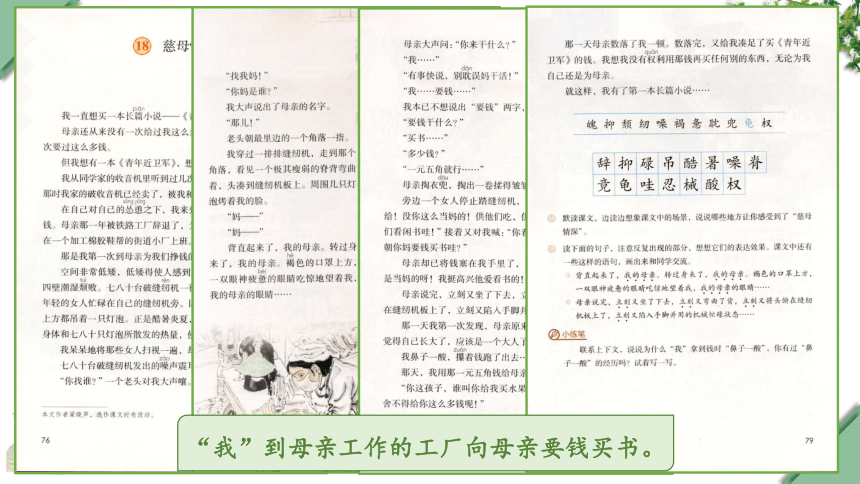 18 慈母
我一直想买一本长篇小说——《
母亲还从来没有一次给过我这么
次要过这么多钱。
但我想有一本《青年近卫军》，想
我从同学家的收音机里听到过几次
那时我家的破收音机已经卖了，被我和
在自己对自己的怂恿之下，我来
钱。母亲那一年被铁路工厂辞退了，
在一个加工棉胶鞋帮的街道小厂上班。
那是我第一次到母亲为我们挣钱的
空间非常低矮，低矮得使人感到
四壁潮湿颓败。七八十台破缝纫机一
年轻的女人忙碌在自己的缝纫机旁。
上方都吊着一只灯泡。正是酷暑炎夏，
身体和七八十只灯泡所散发的热量，使
我呆呆地将那些女人扫视一遍，却
七八十台破缝纫机发出的噪声震
“你找谁？”一个老头对我大声嚷。
本文作者梁晓声，选作课文时有改动。
76
“找我妈！”
“你妈是谁？”
我大声说出了母亲的名字。
“那儿！”
老头朝最里边的一个角落一指。
我穿过一排排缝纫机，走到那个
角落，看见一个极其瘦弱的脊背弯曲
着，头凑到缝纫机板上。周围几只灯
泡烤着我的脸。
“妈——”
“妈——”
背直起来了，我的母亲。转过身
来了，我的母亲。褐色的口罩上方，
一双眼神疲惫的眼睛吃惊地望着我，
我的母亲的眼睛……
母亲大声问：“你来干什么？”
“我……”
“有事快说，别耽误妈干活！”
“我……要钱……”
我本已不想说出“要钱”两字，
“要钱干什么？”
“买书……”
“多少钱？”
“一元五角就行……”
母亲掏衣兜，掏出一卷揉得皱皱
旁边一个女人停止踏缝纫机，
给！没你这么当妈的！供他们吃，供
们看闲书哇！”接着又对我喊：“你看
朝你妈要钱买书哇？”
母亲却已将钱塞在我手里了，
是当妈的呀！我挺高兴他爱看书的！
母亲说完，立刻又坐了下去，立
在缝纫机板上了，立刻又陷入手脚并
那一天我第一次发现，母亲原来
觉得自己长大了，应该是一个大人了
我鼻子一酸，攥着钱跑了出去…
那天，我用那一元五角钱给母亲
“你这孩子，谁叫你给我买水果
舍不得给你这么多钱呢！”
那一天母亲数落了我一顿。数落完，又给我凑足了买《青年近
卫军》的钱。我想我没有权利用那钱再买任何别的东西，无论为我
自己还是为母亲。
就这样，我有了第一本长篇小说……
魄 抑 颓 纫 噪 褐 惫 耽 兜 龟 权
辞 抑 碌 吊 酷 暑 噪 脊
竟 龟 哇 忍 械 酸 权
默读课文，边读边想象课文中的场景，说说哪些地方让你感受到了“慈母
情深”。
读下面的句子，注意反复出现的部分，想想它们的表达效果。课文中还有
一些这样的语句，画出来和同学交流。
背直起来了，我的母亲。转过身来了，我的母亲。褐色的口罩上方，
一双眼神疲惫的眼睛吃惊地望着我，我的母亲的眼睛……
母亲说完，立刻又坐了下去，立刻又弯曲了背，立刻又将头俯在缝纫
机板上了，立刻又陷入手脚并用的机械忙碌状态……
小练笔
联系上下文，说说为什么“我”拿到钱时“鼻子一酸”。你有过“鼻
子一酸”的经历吗？试着写一写。
79
“我”到母亲工作的工厂向母亲要钱买书。